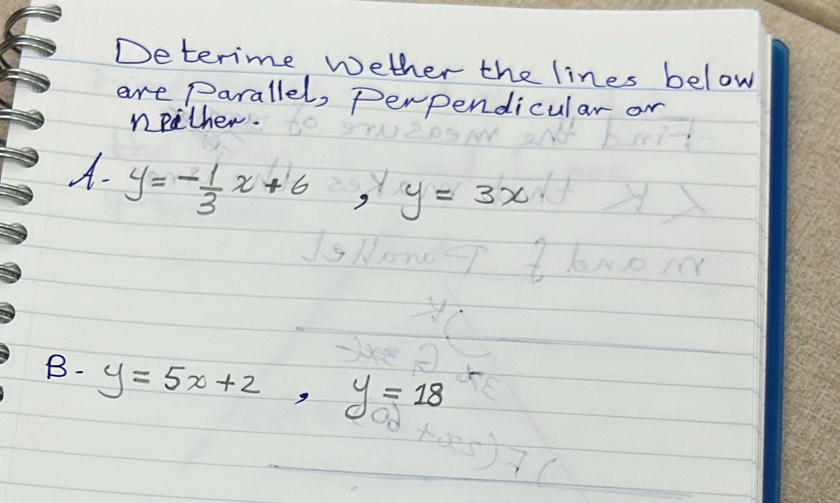 Deterime wether the lines below
are Parallel, Perpendicular or
neither.
A- y = -1/3 x + 6 , y = 3x
B- y = 5x + 2 , y = 18